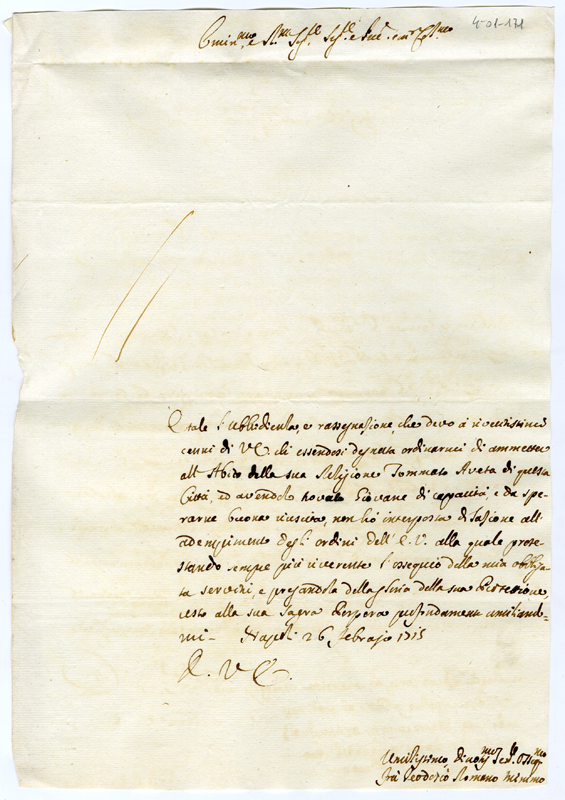 4-01-171
Emin.mo e R.mo Sig.re Sig.re e
E tale l'ubbidienza, e rassegnazione, che devo a i riveritissimi
cenni di V.E. che essendosi degnata ordinarmi di ammettere
all'Abito della sua Religione Tommaso Aveta di questa
Città, ed avendolo trovato Giovane di capacità, e da spe-
rarne buona riuscita, non hò interposta dilazione all'
adempimento degl'ordini dell'E.V. alla quale prote-
stando sempre più riverente l'ossequio della mia obbliga-
ta servitù, e pregandola della gloria della sua Protezzione,
resto alla sua Sagra Porpora profondamente umiliando-
mi - Napoli 26 Febrajo 1715
D. V. E.
Umilissimo, divotis.mo Ser.
frà Teodosio Romano Minimo